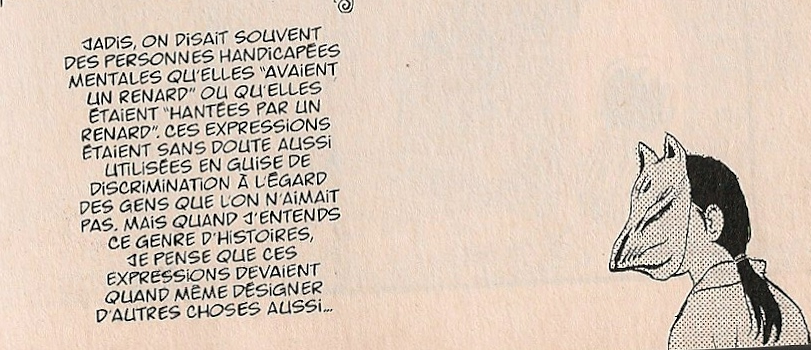 JADIS, ON DISAIT SOUVENT
DES PERSONNES HANDICAPÉES
MENTALES QU'ELLES "AVAIENT
UN RENARD" OU QU'ELLES
ÉTAIENT "HANTÉES PAR UN
RENARD". CES EXPRESSIONS
ÉTAIENT SANS DOUTE AUSSI
UTILISÉES EN GUISE DE
DISCRIMINATION À L'ÉGARD
DES GENS QUE L'ON N'AIMAIT
PAS. MAIS QUAND J'ENTENDS
CE GENRE D'HISTOIRES,
JE PENSE QUE CES
EXPRESSIONS DEVAIENT
QUAND MÊME DÉSIGNER
D'AUTRES CHOSES AUSSI...